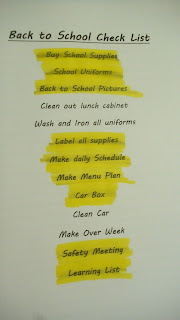 Back to School Check List
Buy School Supplies
School Uniforms
Back to School Pictures
Clean out lunch cabinet
Wash and Iron all uniforms
Label all supplies
Make daily Schedule
Make Menu Plan
Car Box
Clean Car
Make Over Week
Safety Meeting
Learning List